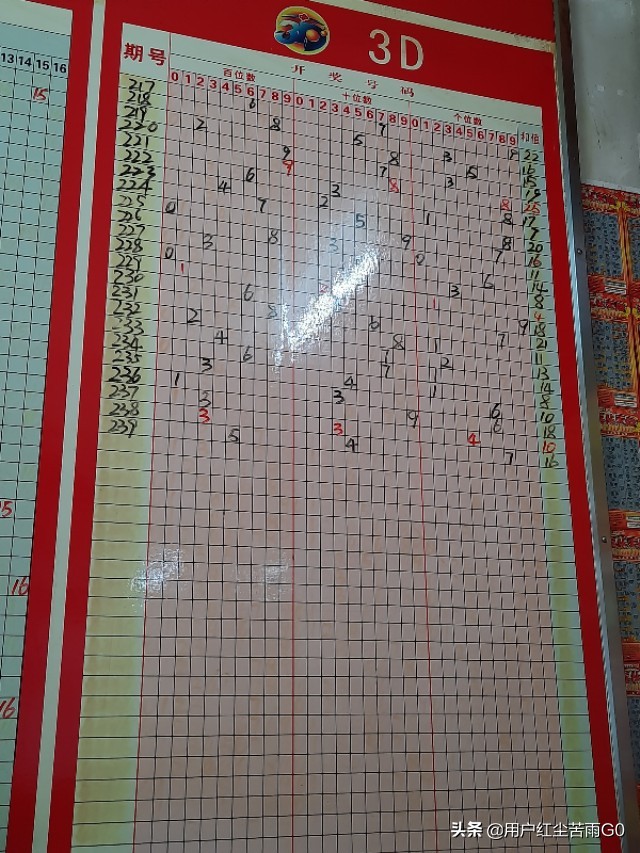 3D
13 14 15 16
15
期号 开奖号码
百位数 十位数 个位数 和值
0 1 2 3 4 5 6 7 8 9 0 1 2 3 4 5 6 7 8 9 0 1 2 3 4 5 6 7 8 9
217 6 7 8 22
218 8 5 3 16
219 2 8 5 15
220 9 7 3 19
221 9 8 8 25
222 6 3 8 17
223 4 2 1 7
224 7 5 8 20
225 0 9 7 16
226 8 3 0 11
227 3 6 14
228 0 3 8
229 1 1 4
230 6 9 18
231 8 6 7 21
232 2 8 1 11
233 4 7 2 13
234 6 7 1 14
235 3 4 1 8
236 1 3 6 10
237 3 9 6 18
238 3 3 4 10
239 5 4 7 16
16
16
头条 @用户红尘苦雨G0